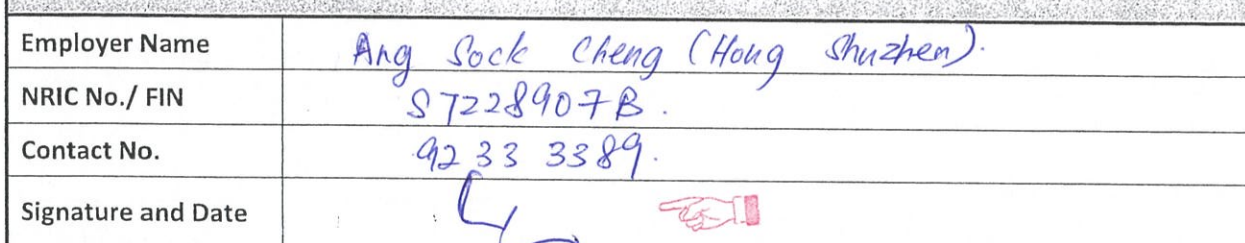 Employer Name Ang Sock Cheng (Hong Shuzhen).
NRIC No./ FIN S7228907B.
Contact No. 9233 3389.
Signature and Date